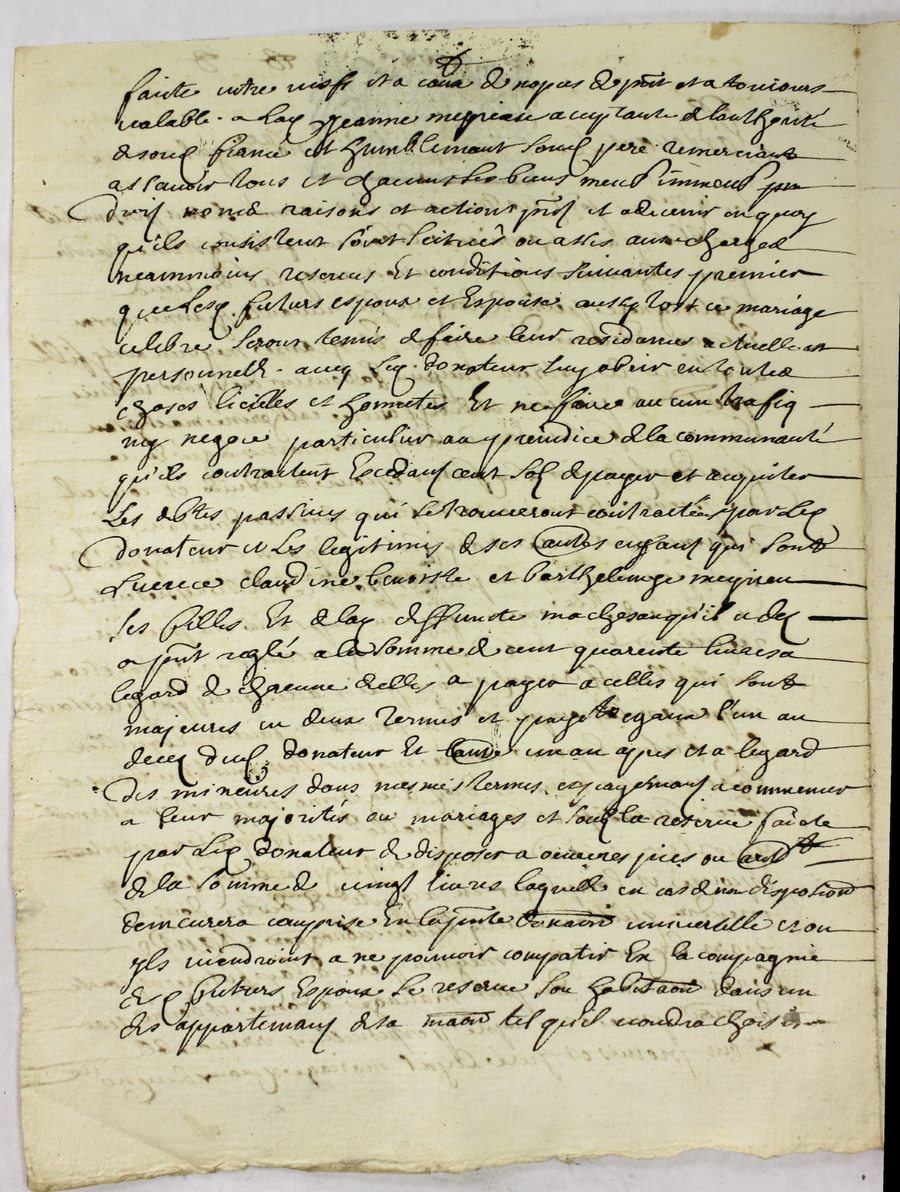 faicte entre vifs et a cause de nopces de pnt et a tousjours
valable a lad Jeanne meyrieu acceptante de lauthorité
de sond fiancé et humblement sond pere remerciant
a scavoir tous et chacuns ses biens meubs immeubs pnt
droitz noms raisons et actions pntz et advenir en quoy
quils consistent soint scitués ou assis aux charges
neammoins reserves Et conditions suivantes premier
que lesd futurs espoux et Espouse aussy tost ce mariage
celebré seront tenus de faire leur residance actuelle et
personnelle avecq led donateur luy obeir en toutes
choses licittes et honnetes Et ne faire aucun trafiq
ny negoce particulier au prejudice de la communauté
quils contractent Excedant cent solz de payer et acquiter
Les debtes passives qui se trouveront contractées par led
donateur et Les legitimes de ses autres enfans qui sont
Lucrece claudine benoiste et barthelemye meyrieu
ses filles Et de lad deffuncte qu'il a des
a pnt reglé a la somme de cent quarente livres a
legard de chacune delles a payer a celles qui sont
majeures en deux termes et payets egaux l'un au
deces dud donateur Et lautre un an apres et a legard
des mineures dans mesmes termes et payemens a commencer
a leur majorités ou mariages et soubz la reserve faicte
par led donateur de disposer a oeuvres pies ou aultt
de la somme de vingt livres laquelle en cas de non dispotion
demeurera comprise En la pnte donaon universelle et ou
yls viendroint a ne pouvoir compatir En la compagnie
desd futurs Espoux se reserve son habitaon dans un
des appartemans de sa maon tel qu'il voudra choisir